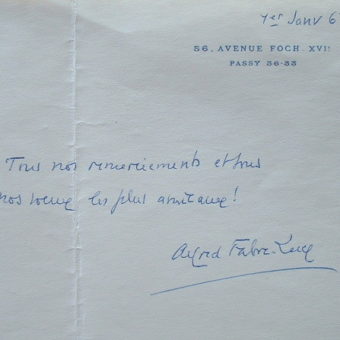 1er Janv 6
56, AVENUE FOCH. XVIE
PASSY 56-33
Tous nos remerciements et tous
nos voeux les plus amicaux!
Alfred Fabre-Luce